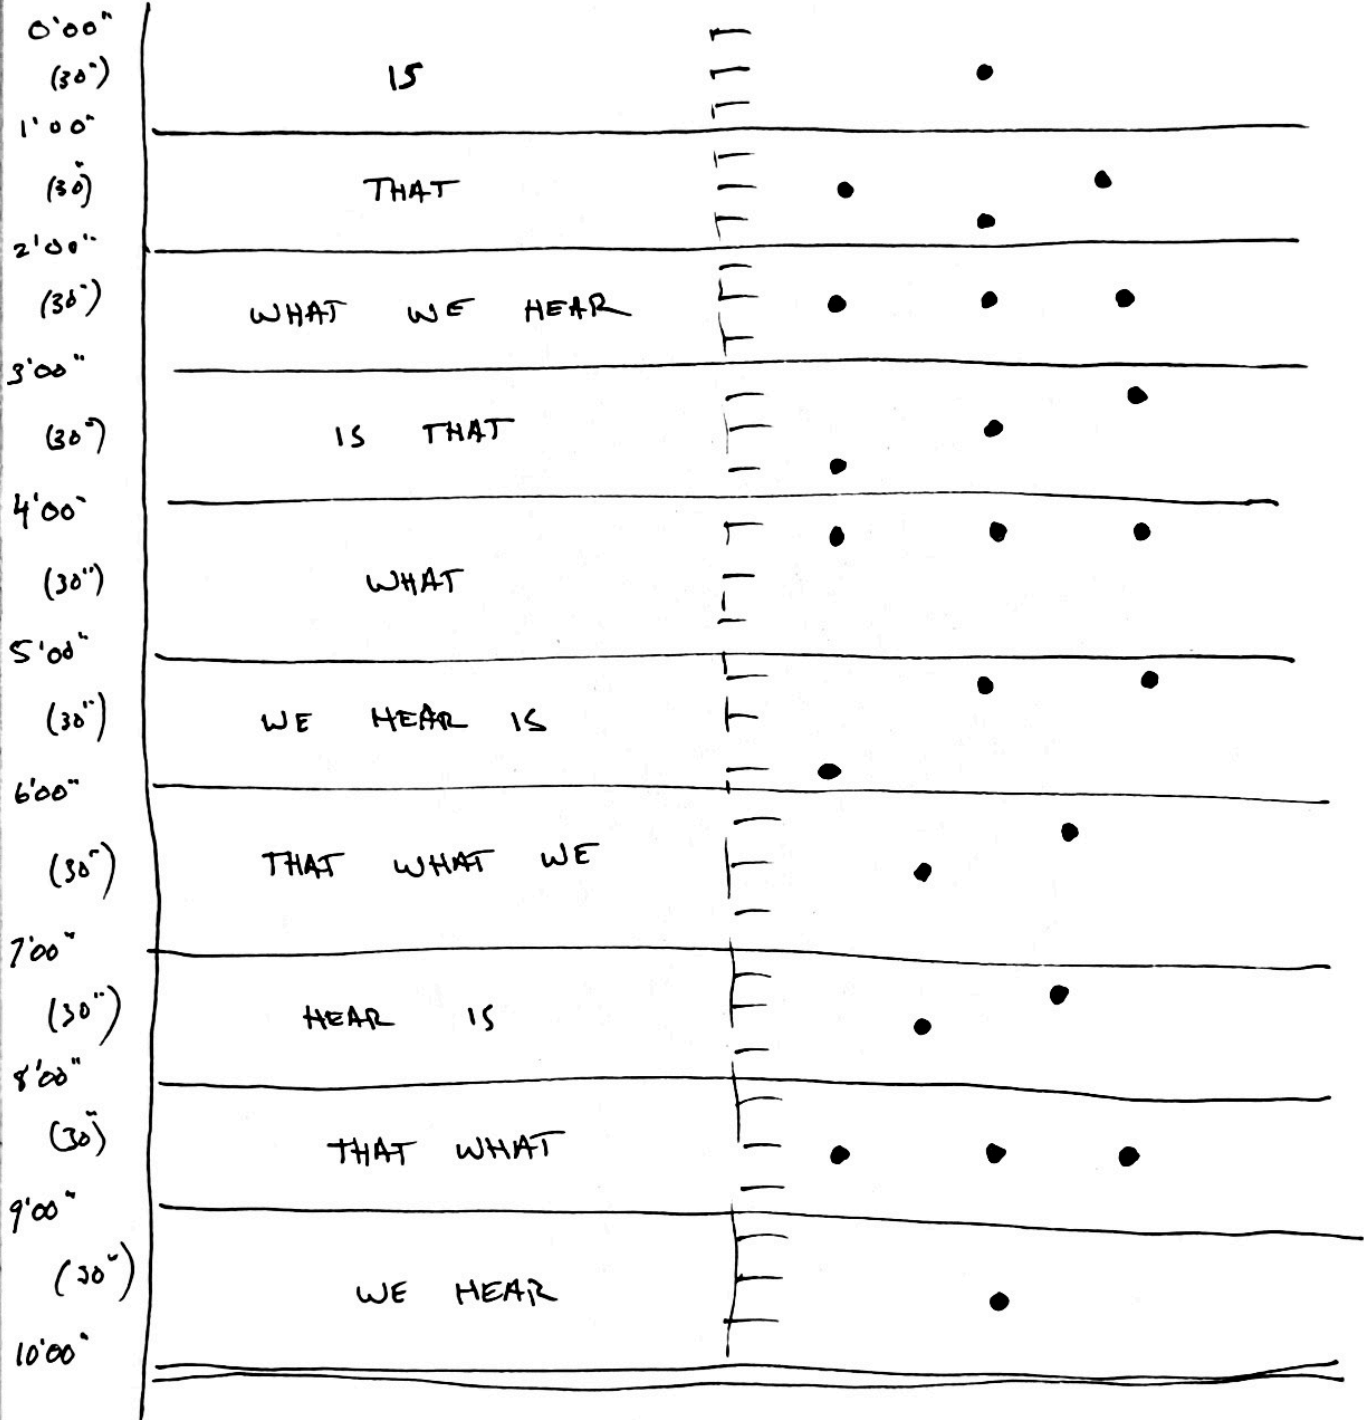 0'00"
(30") IS
1'00"
(30") THAT
2'00"
(30") WHAT WE HEAR
3'00"
(30") IS THAT
4'00"
(30") WHAT
5'00"
(30") WE HEAR IS
6'00"
(30") THAT WHAT WE
7'00"
(30") HEAR IS
8'00"
(30") THAT WHAT
9'00"
(30") WE HEAR
10'00"